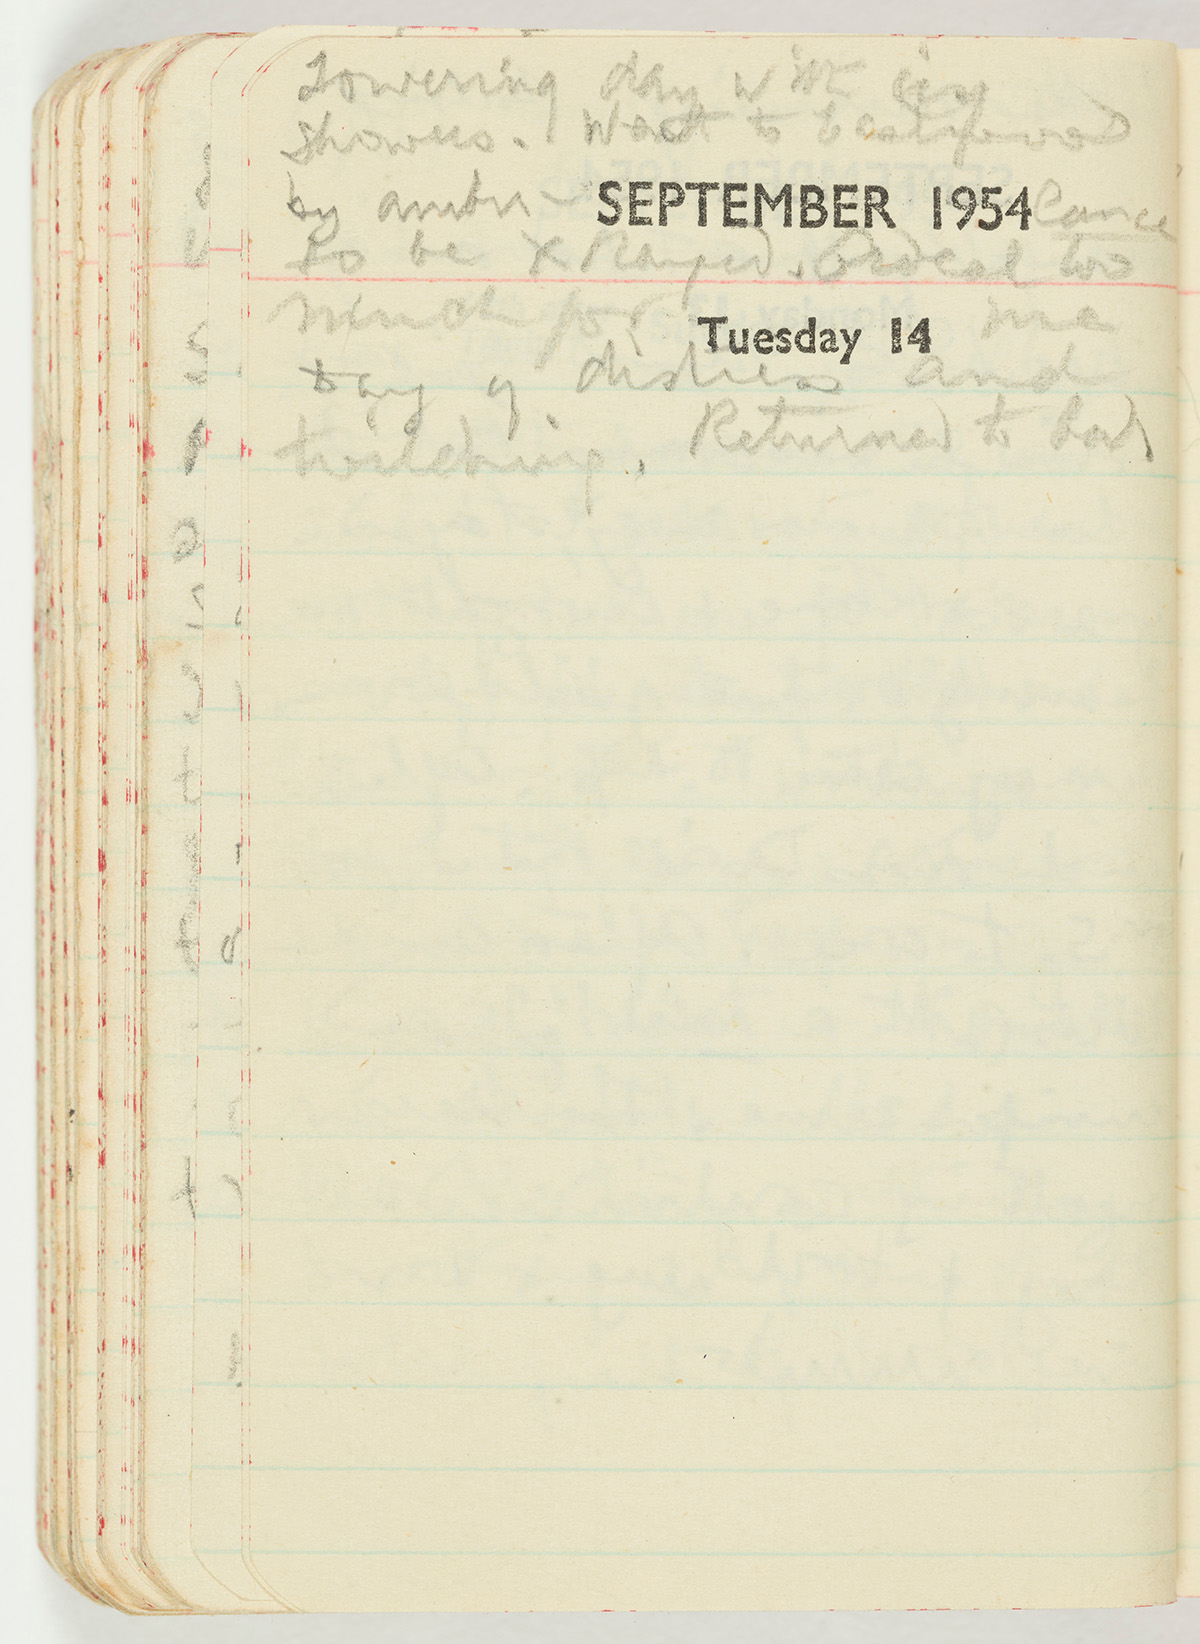 Lowering day with icy
showers. Went to Eastwood
by ambu- SEPTEMBER 1954 lance
to be X Rayed. Ordeal too
much for me
Tuesday 14
day of distress and
Returned to bed